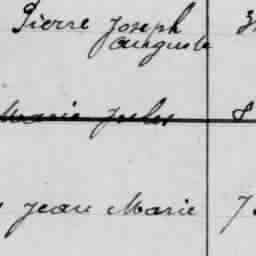 Pierre Joseph
Auguste
Marie Jules
Jean Marie 7